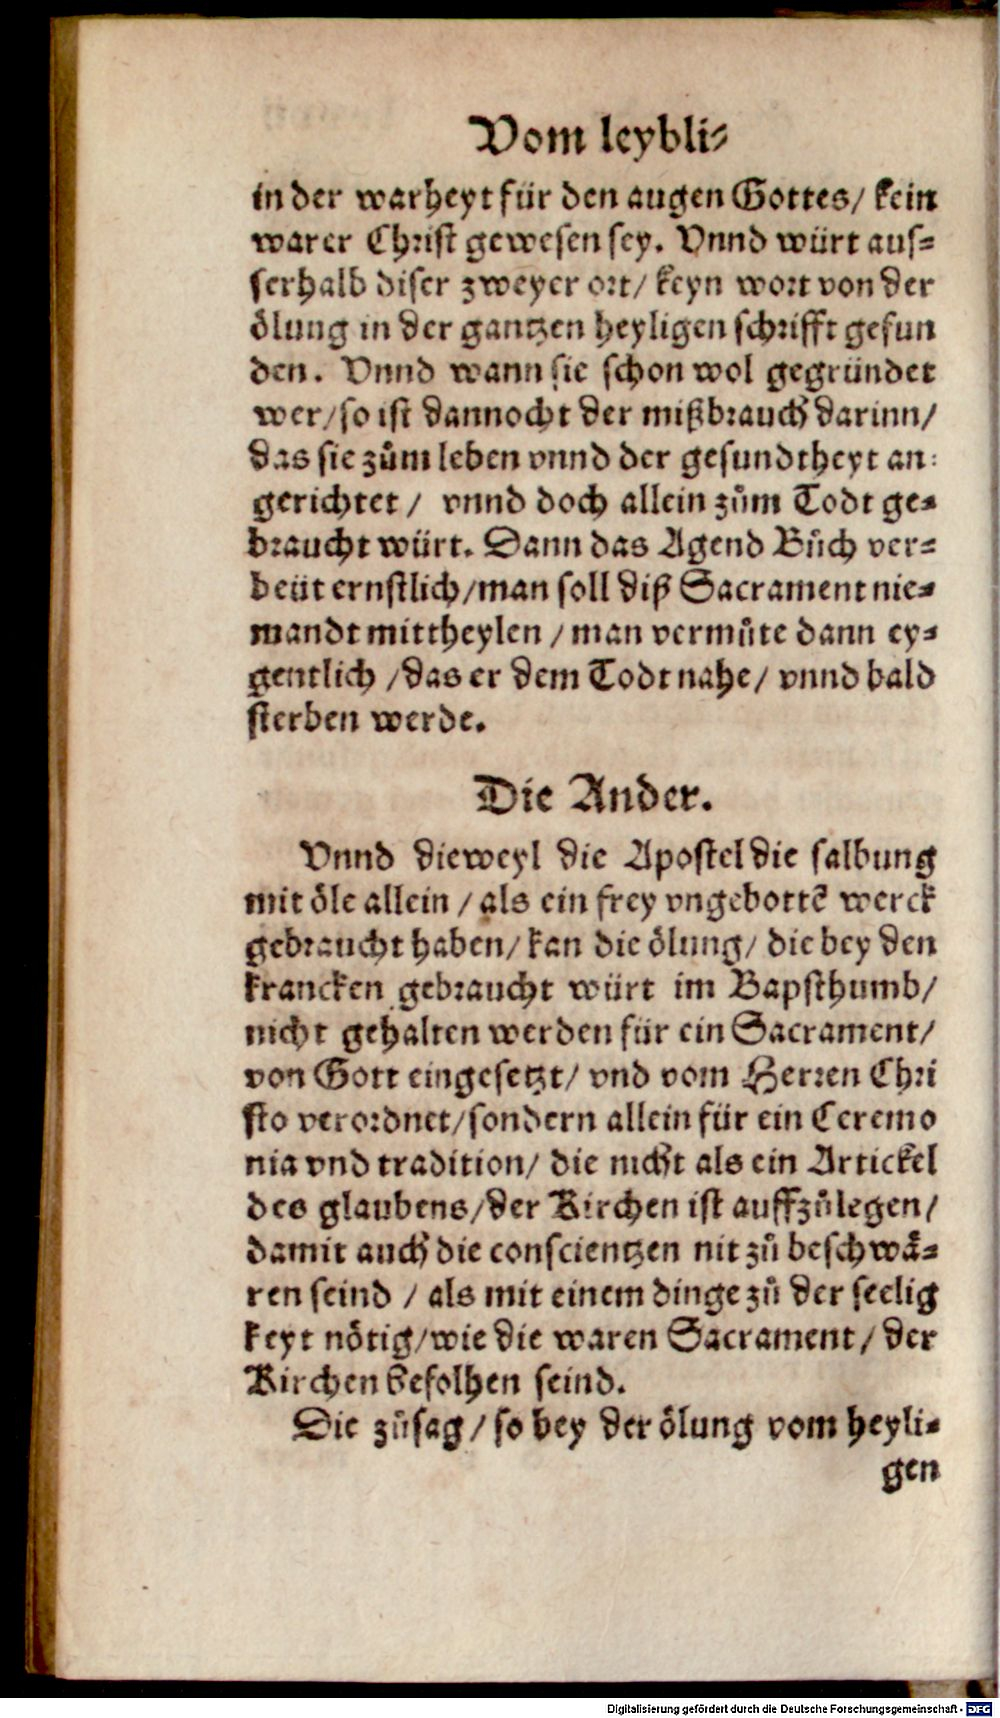 Vom leybli⸗
in der warheyt für den augen Gottes/ kein
warer Christ gewesen sey. Vnnd würt aus⸗
serhalb diser zweyer ort/ keyn wort von der
ölung in der gantzen heyligen schrifft gefun
den. Vnnd wann sie schon wol gegründet
wer/so ist dannocht der mißbrauch darinn/
das sie zům leben vnnd der gesundtheyt an:
gerichtet / vnnd doch allein zům Todt ge⸗
braucht würt. Dann das Agend Bůch ver⸗
beüt ernstlich/man soll diß Sacrament nie⸗
mandt mittheylen / man vermůte dann ey⸗
gentlich /das er dem Todt nahe/ vnnd bald
sterben werde.
Die Ander.
Vnnd dieweyl die Apostel die salbung
mit öle allein / als ein frey vngebottē werck
gebraucht haben/ kan die ölung/ die bey den
krancken gebraucht würt im Bapsthumb/
nicht gehalten werden für ein Sacrament/
von Gott eingesetzt/ vnd vom Herren Chri
sto verordnet/sondern allein für ein Ceremo
nia vnd tradition/ die nicht als ein Artickel
des glaubens/der Kirchen ist auffzůlegen/
damit auch die conscientzen nit zů beschwä⸗
ren seind / als mit einem dinge zů der seelig
keyt nötig/wie die waren Sacrament/ der
Kirchen befolhen seind.
Die zůsag/ so bey der ölung vom heyli⸗
gen
Digitalisierung gefördert durch die Deutsche Forschungsgemeinschaft - DFG